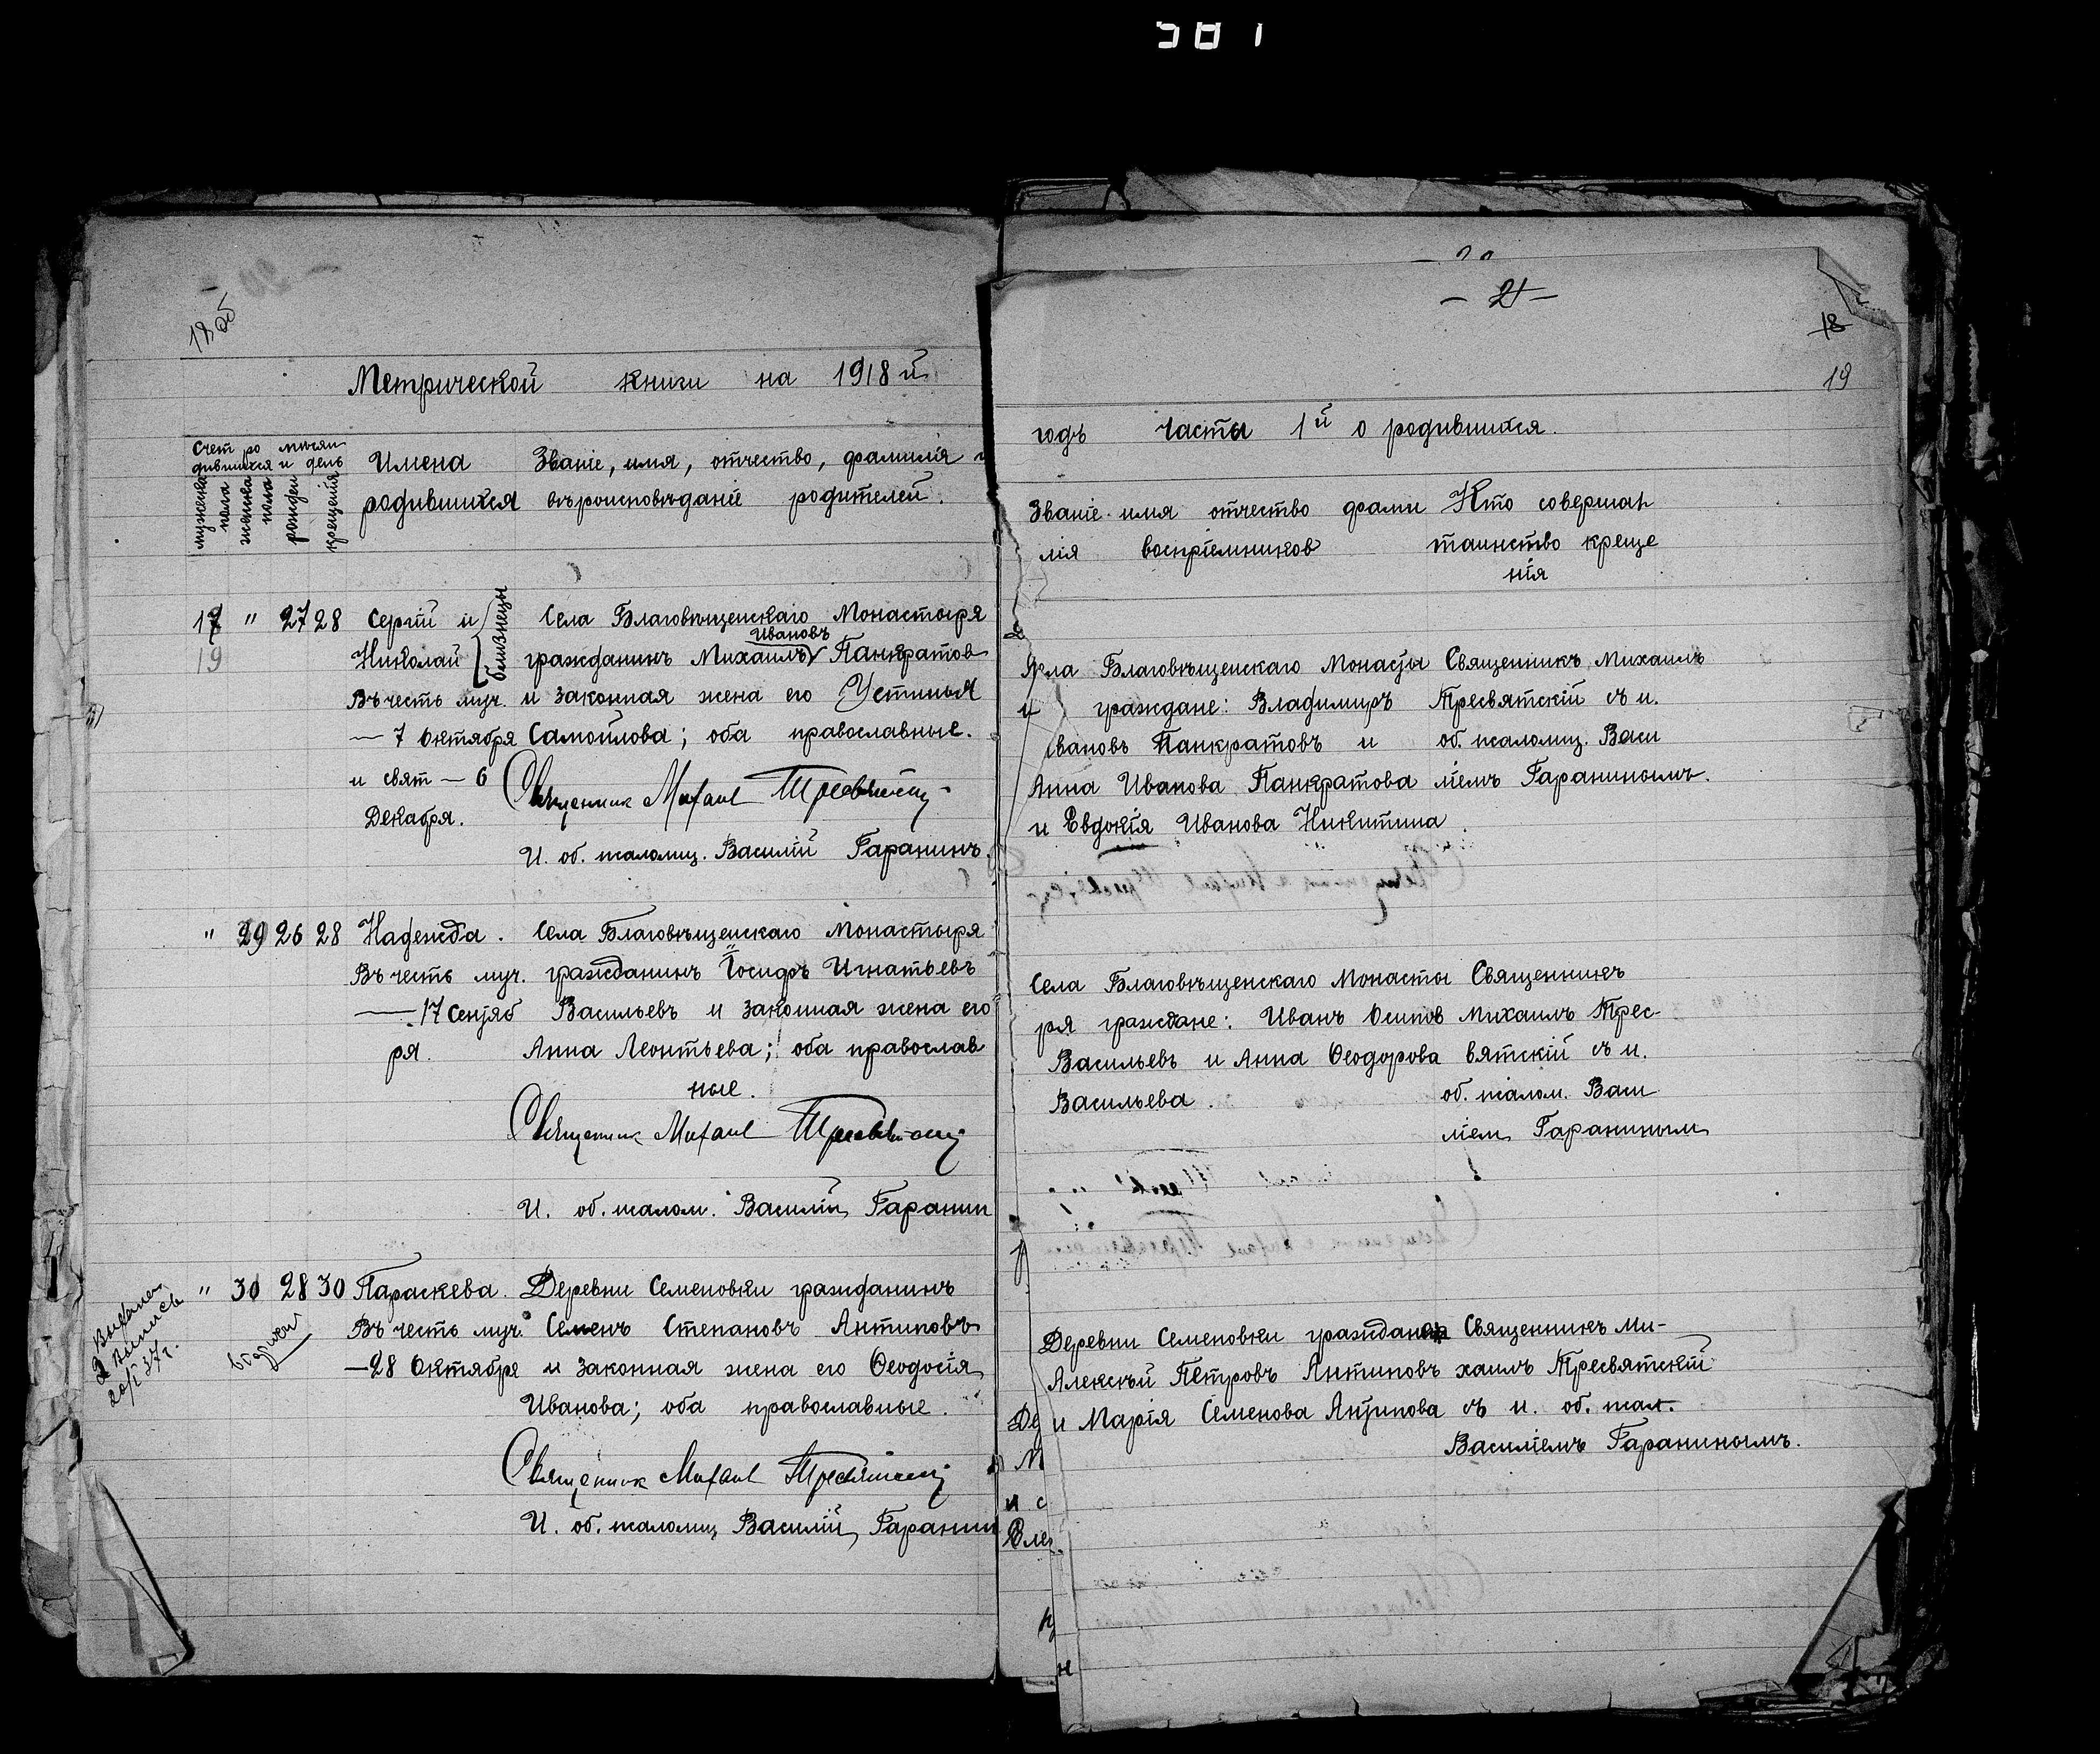 381
18 об
Метрической книги на 1918 й
Счет ро дившихся
месяц и день
мужеска пола
женска пола
рожден
крещенія
Имена родившихся
Званіе, имя, отчество, фамилія и
вѣроисповѣданіе родителей.
17 " 27 28 Сергій и
19 Николай
близнецы
Въ честь муч.
— 7 Октября
и свят — 6
Декабря.
Села Благовѣщенскаго Монастыря
Ивановъ
гражданинъ Михаилъ Панкратов
и законная жена его Устинья
Самойлова; оба православные.
Священник Михаил Тресвятский
И. об. псаломщ. Василій Гаранинъ
" 29 26 28 Надежда.
Въ честь муч.
— 17 Сентяб
ря.
Села Благовѣщенскаго Монастыря
гражданинъ Іосифъ Игнатьевъ
Васильевъ и законная жена его
Анна Леонтьева; оба православ
ные.
Священник Михаил Тресвятский
И. об. псалом. Василій Гаранин
Выдана
выпись
20/I 37 г.
" 30 28 30 Параскева.
Въ честь муч.
— 28 Октября
Деревни Семеновки гражданинъ
Семенъ Степановъ Антиповъ
и законная жена его Ѳеодосія
Иванова; оба православные.
Священник Михаил Тресвятский
И. об. псаломщ Василій Гаранин
— 21 —
18
19
годъ Части 1й о родившихся.
Званіе имя отчество фами
лія воспріемников
Кто совершал
таинство креще
нія
Села Благовѣщенскаго Монасты
граждане: Владимиръ
Ивановъ Панкратовъ и
Анна Иванова Панкратова
и Евдокія Иванова Никитина
Священникъ Михаилъ
Тресвятскій съ и.
об. псаломщ. Васи
ліемъ Гаранинымъ.
Села Благовѣщенскаго Монасты
ря граждане: Иванъ Осипов
Васильевъ и Анна Ѳеодорова
Васильева.
Священникъ
Михаилъ Трес-
вятскій съ и.
об. псалом. Васи
ліем Гараниным
Деревни Семеновки граждане
Алексѣй Петровъ Антиповъ
и Марія Семенова Антипова
Священникъ Ми-
хаилъ Тресвятскій
съ и. об. псал.
Василіемъ Гаранинымъ.